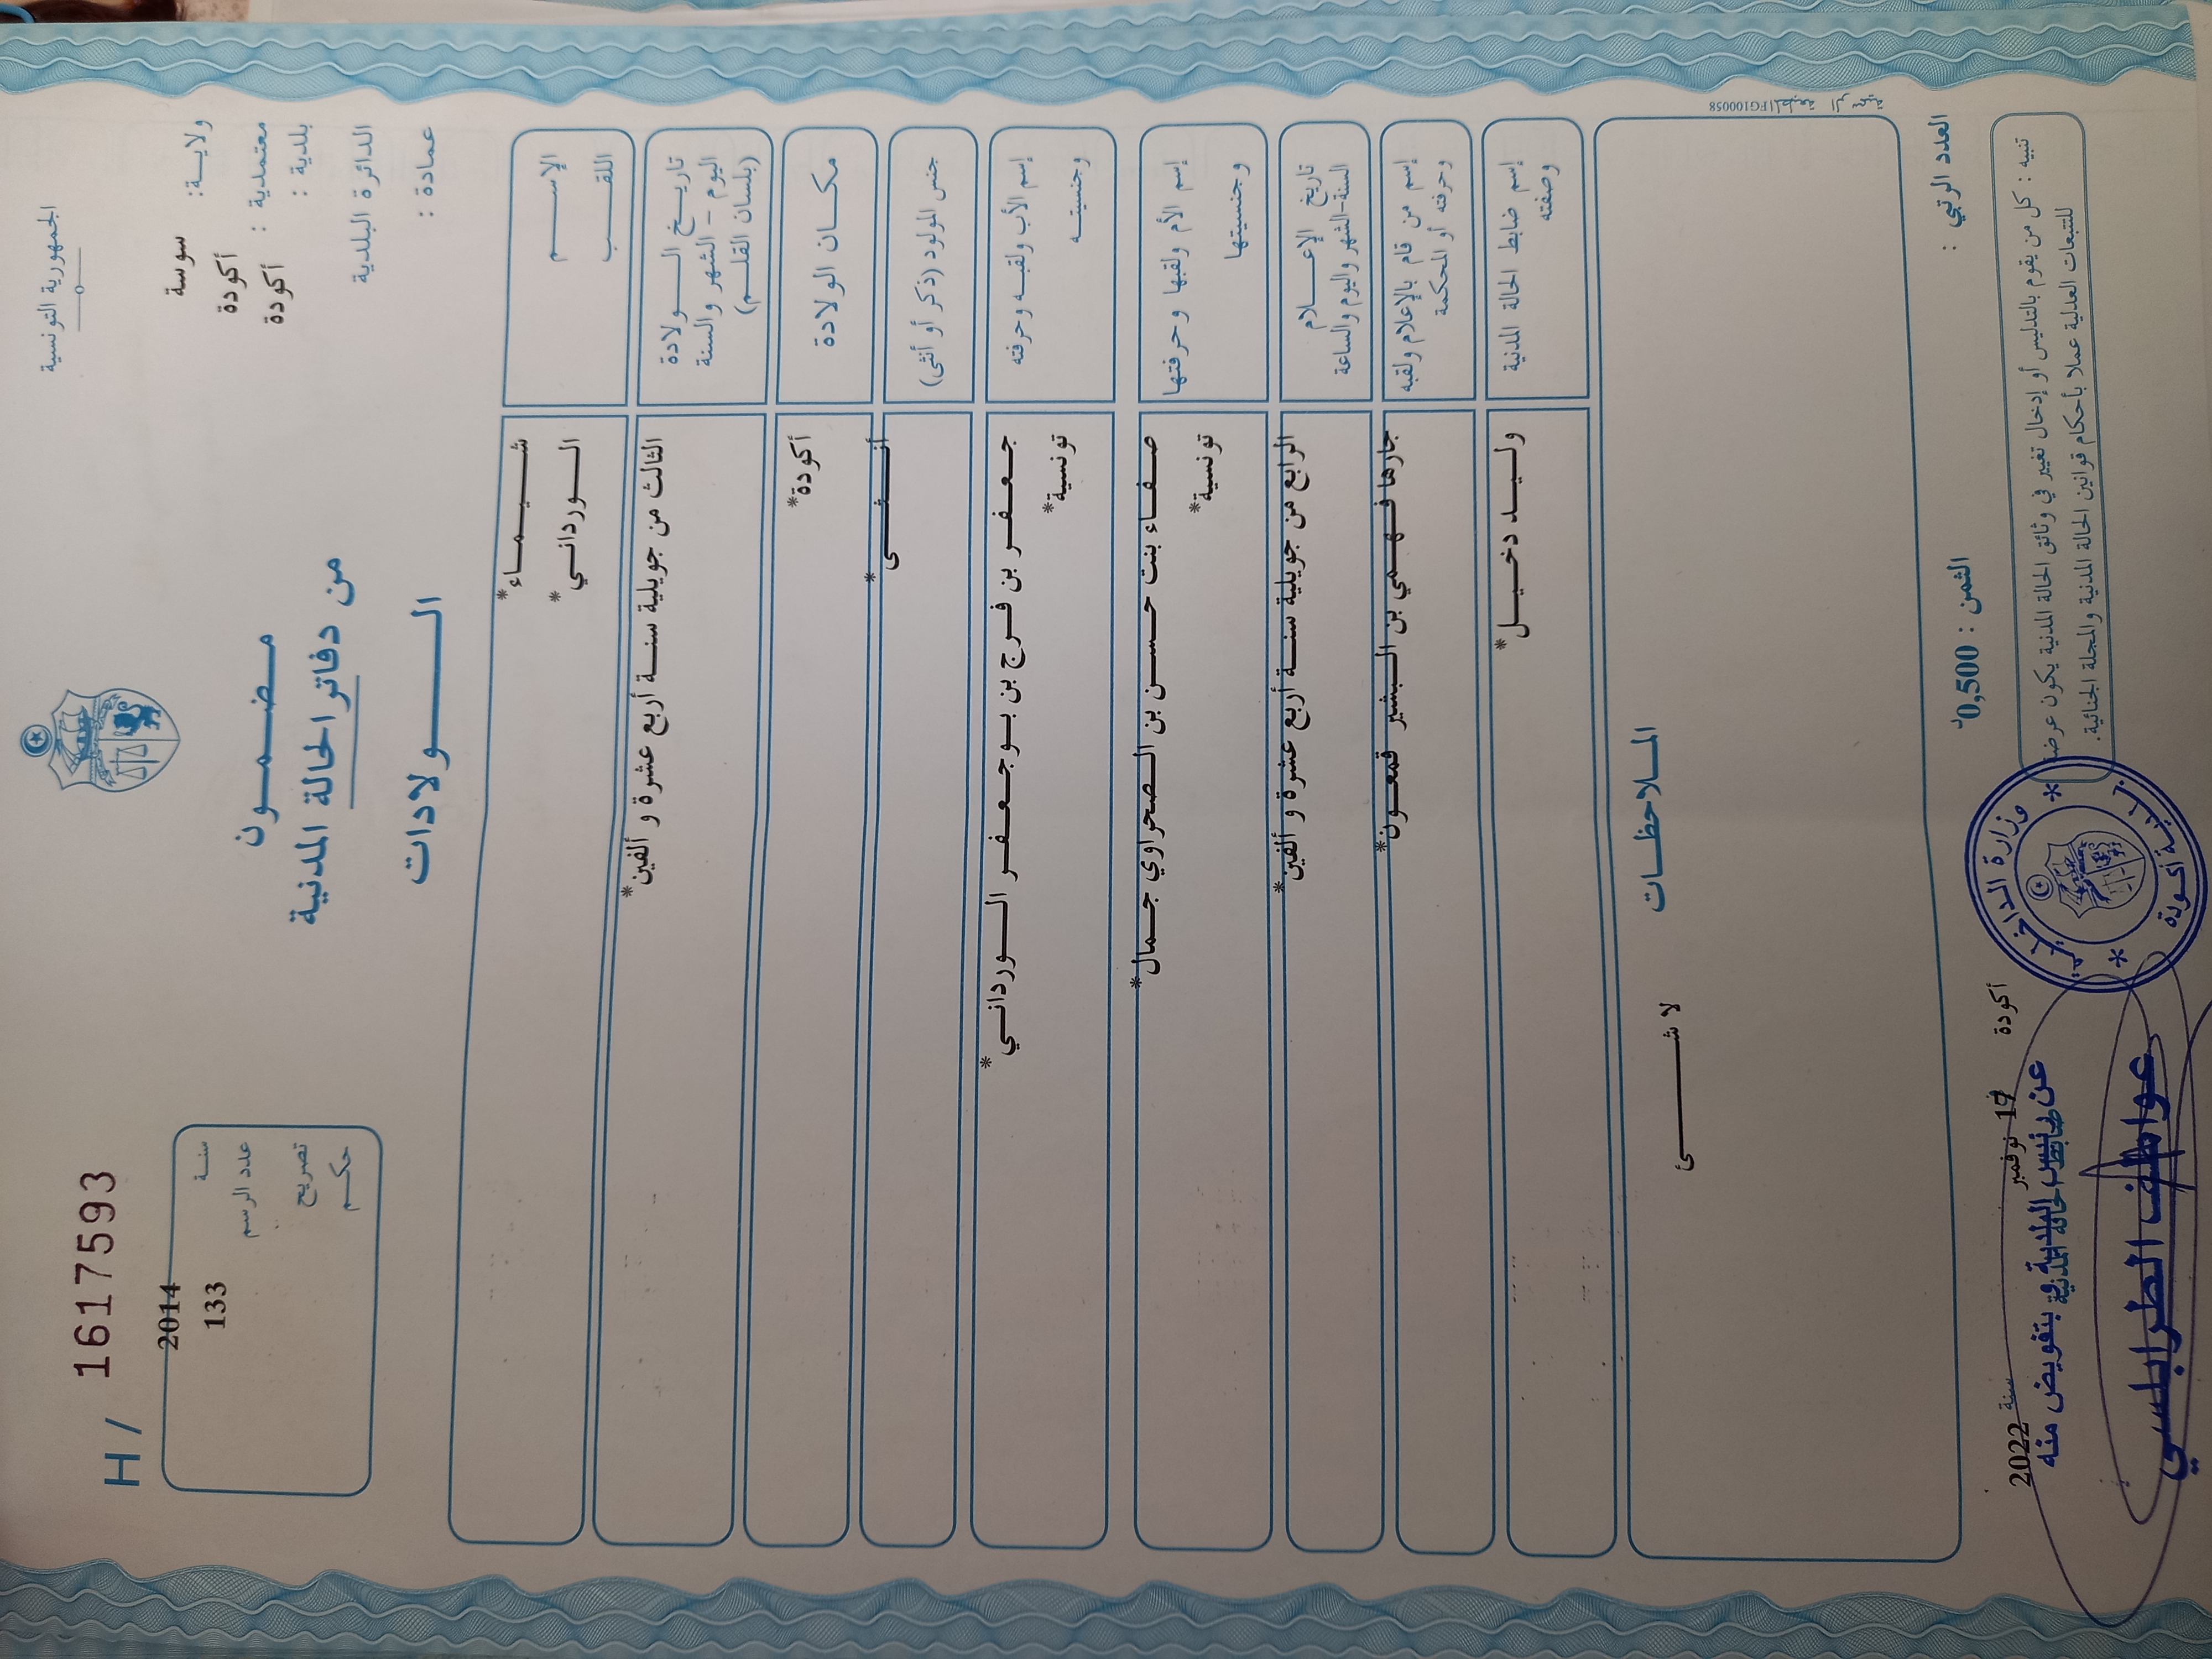 الجمهورية التونسية
H / 1617593
ولاية: سوسة
معتمدية : أكودة
بلدية : أكودة
الدائرة البلدية
عمادة :
مضمون
من دفاتر الحالة المدنية
الولادات
سنة 2014
عدد الرسم 133
تصريح
حكم
الإسم شيماء*
اللقب الورداني*
تاريخ الولادة
اليوم - الشهر والسنة
(بلسان القلم)
الثالث من جويلية سنة أربع عشرة و ألفين*
مكان الولادة أكودة*
جنس المولود (ذكر أو أنثى) أنثى*
إسم الأب ولقبه وحرفته جعفر بن فرج بن بوجعفر الورداني*
وجنسيته تونسية*
إسم الأم ولقبها وحرفتها صفاء بنت حسن بن الصحراوي جمال*
وجنسيتها تونسية*
تاريخ الإعلام
السنة-الشهر واليوم والساعة
الرابع من جويلية سنة أربع عشرة و ألفين*
إسم من قام بالإعلام ولقبه
وحرفته أو المحكمة
جارها فهمي بن البشير قمعون*
إسم ضابط الحالة المدنية
وصفته
وليد دخيل*
الملاحظات
لا شئ
المطبعة الرسمية FG100058
العدد الرتبي :
الثمن : 0,500د
تنبيه : كل من يقوم بالتدليس أو إدخال تغيير في وثائق الحالة المدنية يكون عرضة
للتتبعات العدلية عملا بأحكام قوانين الحالة المدنية والمجلة الجنائية.
أكودة نوفمبر سنة 2022
وزارة الداخلية
بلدية أكودة
وبتفويض منه
عواطف الطرابلسي